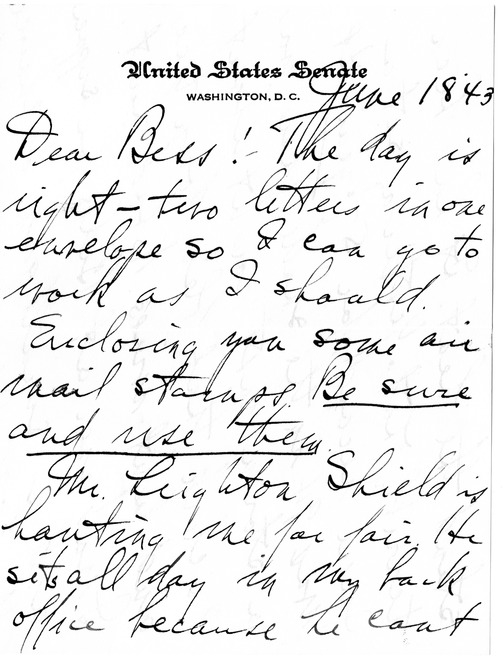 United States Senate
WASHINGTON, D. C.
June 18 '43
Dear Bess:- The day is
right - two letters in one
envelope so I can go to
work as I should.
Enclosing you some air
mail stamps. Be sure
and use them.
Mr. Leighton Shield is
haunting me for fair. He
sits all day in my back
office because he cant